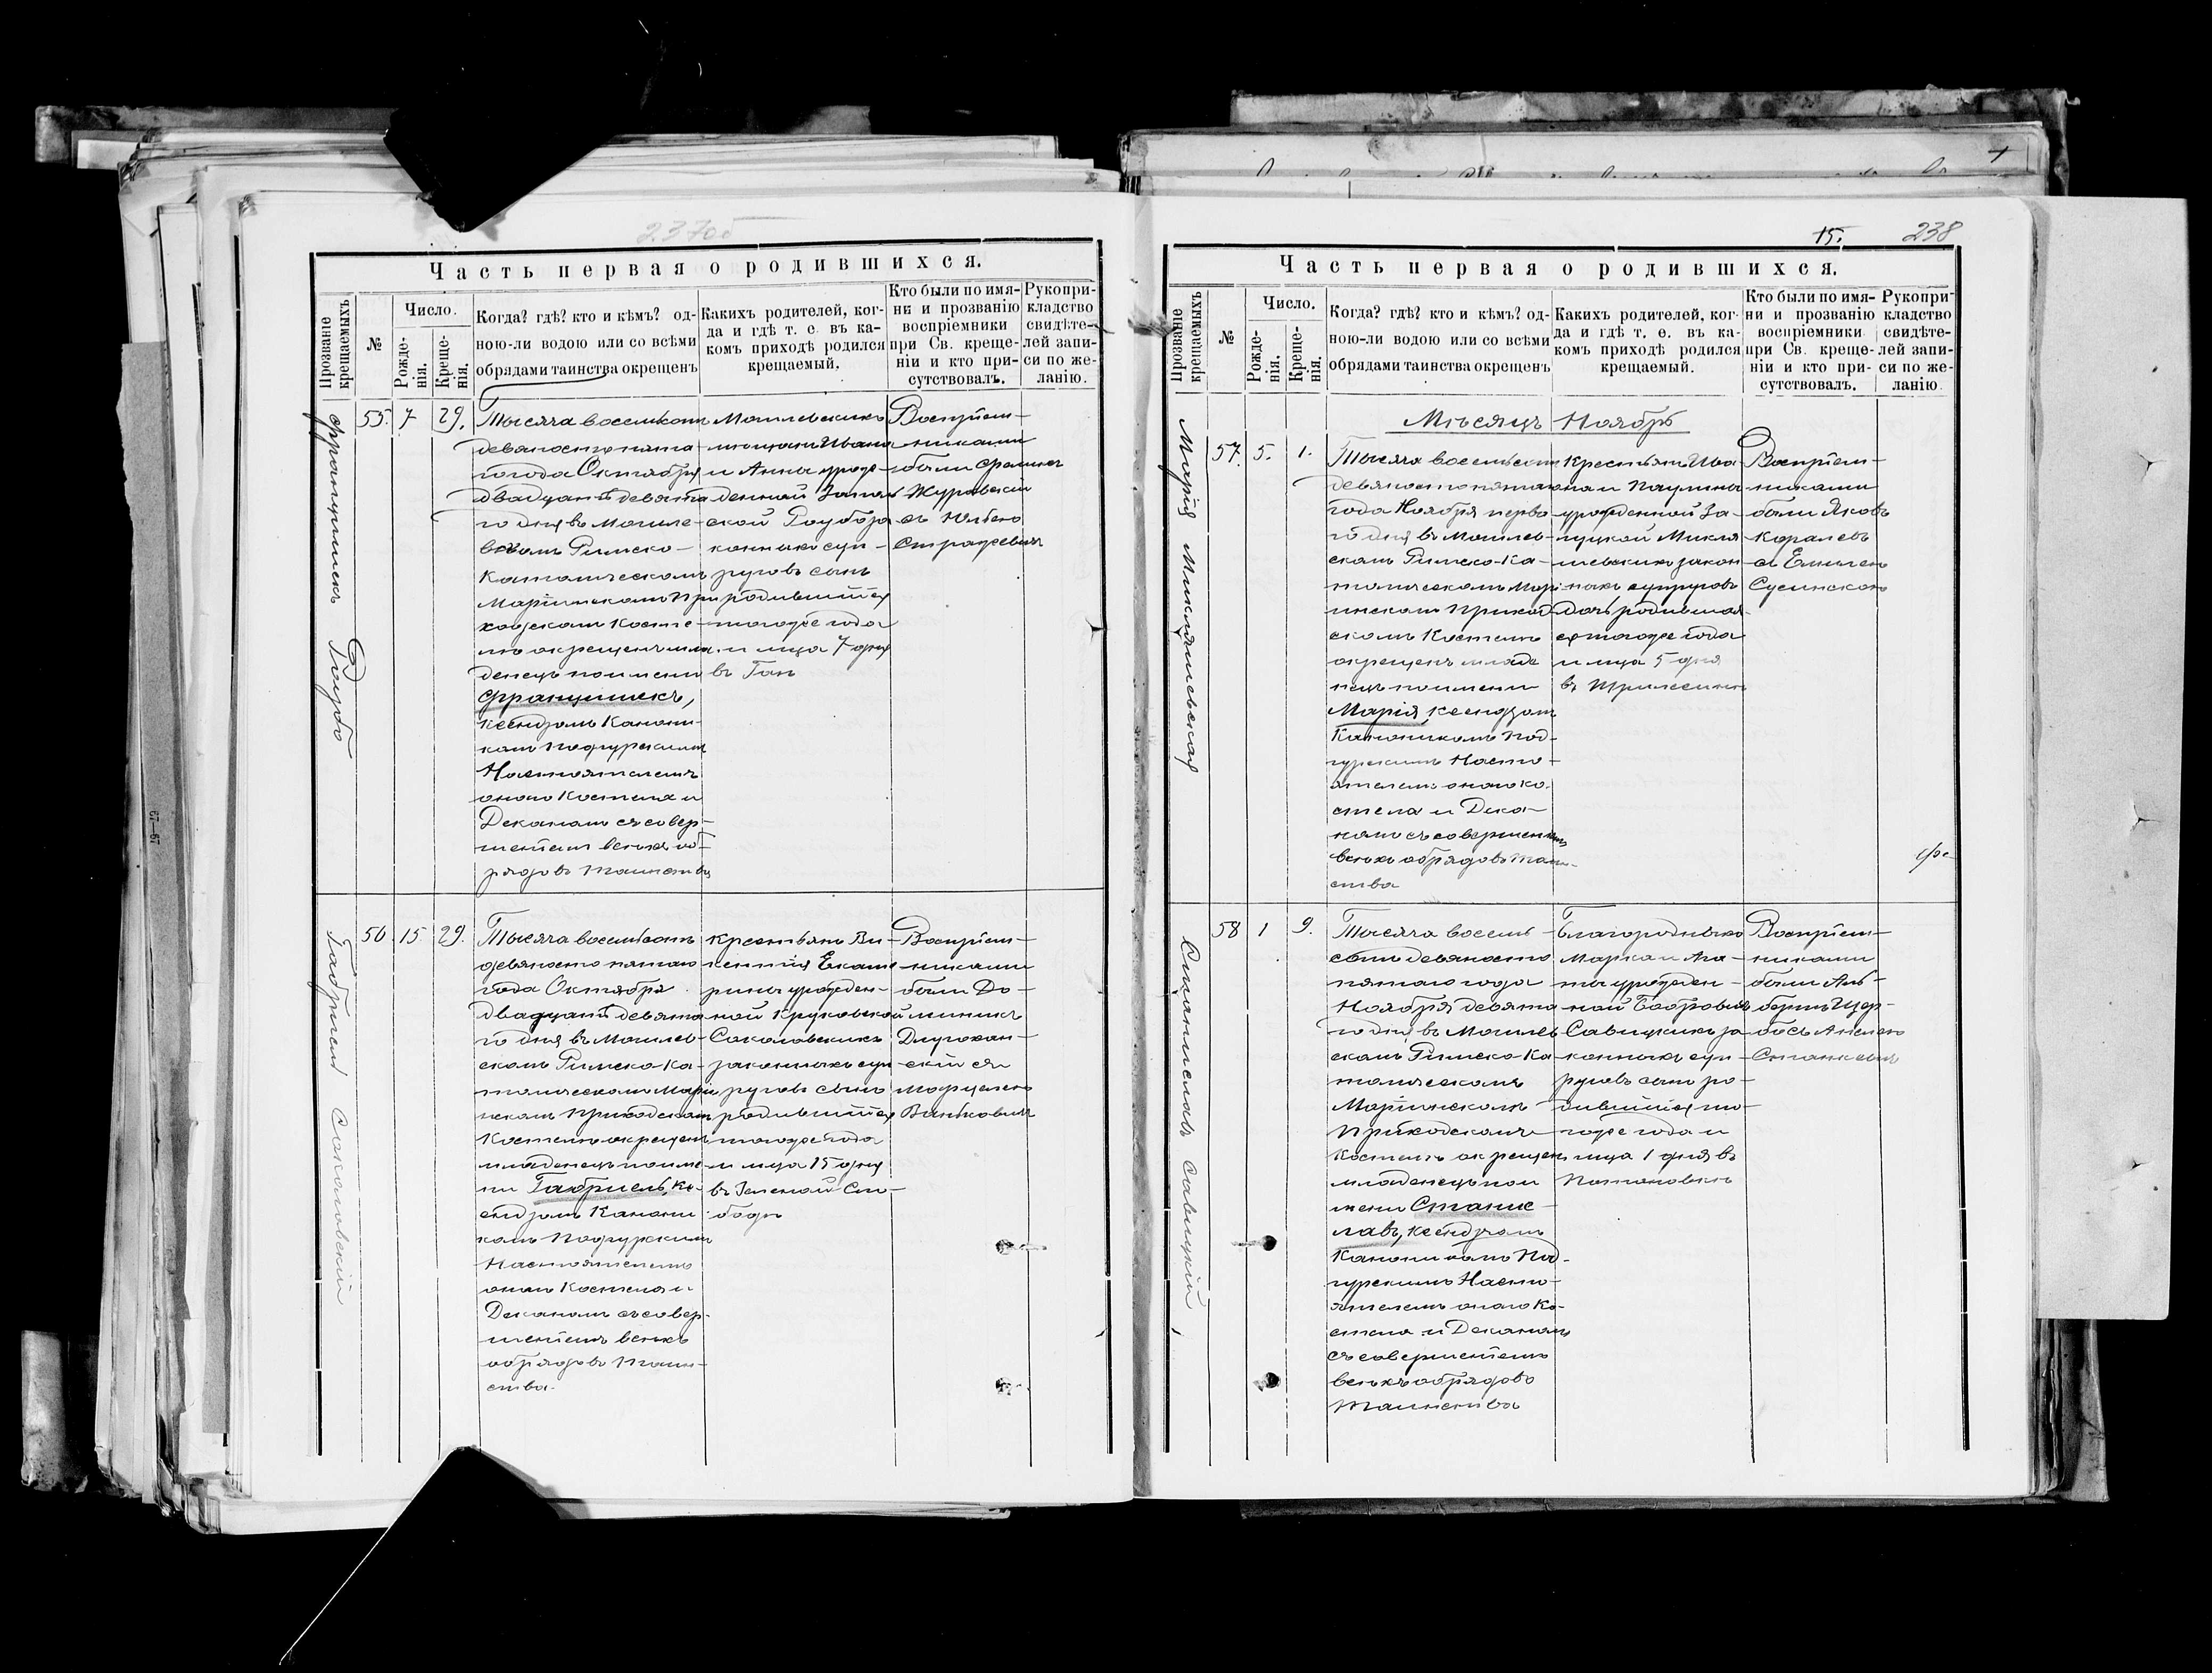 237об
Часть первая о родившихся.
Прозваніе крещаемыхъ
№
Число.
Рожде-
нія.
Креще-
нія.
Когда? гдѣ? кто и кѣмъ? од-
ною-ли водою или со всѣми
обрядами таинства окрещенъ
Какихъ родителей, ког-
да и гдѣ т. е. въ ка-
комъ приходѣ родился
крещаемый.
Кто были по имя-
ни и прозванію
воспріемники
при Св. креще-
ніи и кто при-
сутствовалъ.
Рукопри-
кладство
свидѣте-
лей запи-
си по же-
ланію.
Францишекъ
55. 7 29.
Тысяча восемьсотъ
девяносто пята-
го года Октября
двадцать девята
го дня въ Могиле-
вскомъ Римско-
Католическомъ
Маріинскомъ При
ходскомъ Косте-
лѣ окрещенъ мла-
денецъ по имени
Францишекъ,
Ксендзомъ Канони-
комъ Подгурскимъ
Настоятелемъ
оного Костела и
Деканомъ съ совер-
шеніемъ всѣхъ об-
рядовъ таинства
Могилевскихъ
мещанъ Ивана
и Анны урож-
денной
законныхъ суп-
руговъ сынъ
родившійся
тогоже года
и м-ца 7 дня
въ
Воспріем-
никами
были Францъ
Журавскій
съ
Габріель Соколовскій
56 15 29.
Тысяча восемьсотъ
девяносто пятаго
года Октября
двадцать девята
го дня въ Могилев-
скомъ Римско-Ка-
толическомъ Марі
нскомъ Приходскомъ
Костелѣ окрещенъ
младенецъ по име-
ни Габріель, Кс-
ендзомъ Канони
комъ Подгурскимъ
Настоятелемъ
оного Костела и
Деканомъ съ совер-
шеніемъ всѣхъ
обрядовъ Таин-
ства.
Крестьянъ Ви-
кентія Екате-
рины урожден-
ной Круковской
Соколовскихъ
законныхъ суп-
руговъ сынъ
родившійся
тогоже года
и м-ца 15 дня
въ Зеленой Сло-
бодѣ
Воспріем-
никами
были До-
миникъ
Длугокан-
скій съ
Витковичъ
15. 238
Часть первая о родившихся.
Прозваніе крещаемыхъ
№
Число.
Рожде-
нія.
Креще-
нія.
Когда? гдѣ? кто и кѣмъ? од-
ною-ли водою или со всѣми
обрядами таинства окрещенъ
Какихъ родителей, ког-
да и гдѣ т. е. въ ка-
комъ приходѣ родился
крещаемый.
Кто были по имя-
ни и прозванію
воспріемники
при Св. креще-
ніи и кто при-
сутствовалъ.
Рукопри-
кладство
свидѣте-
лей запи-
си по же-
ланію.
Мѣсяцъ Ноябрь
Марія
57. 5. 1.
Тысяча восемьсотъ
девяносто пятаго
года Ноября перва
го дня въ Могилев-
скомъ Римско-Ка-
толическомъ Марі
инскомъ Приход-
скомъ Костелѣ
окрещенъ младе
нецъ по имени
Марія, Ксендзомъ
Каноникомъ Под-
гурскимъ Насто-
ятелемъ оного Ко-
стела и Дека-
номъ съ совершеніемъ
всѣхъ обрядовъ таин-
ства
Крестьянъ Ива-
на и Паулины
урожденной За-
луцкой
законныхъ супруговъ
дочь родившая-
ся тогоже года
и м-ца 5 дня
въ
Воспріем-
никами
были Яковъ
Королевъ
съ
Станиславъ Савицкій
58 1 9.
Тысяча восемь-
сотъ девяносто
пятаго года
Ноября девята
го дня въ Могилев
скомъ Римско-Ка
толическомъ
Маріинскомъ
Приходскомъ
Костелѣ окрещенъ
младенецъ по и
мени Станис-
лавъ, Ксендзомъ
Каноникомъ Под-
гурскимъ Насто-
ятелемъ оного Ко-
стела и Деканомъ
съ совершеніемъ
всѣхъ обрядовъ
Таинства
Благородныхъ
Марка и Ан-
ны урожден-
ной Бобровичъ
Савицкихъ за
конныхъ суп-
руговъ сынъ ро-
дившійся то-
гоже года и
м-ца 1 дня въ
Воспріем-
никами
были Аль-
бертъ Щер-
бо съ Анелею
Станкевичъ